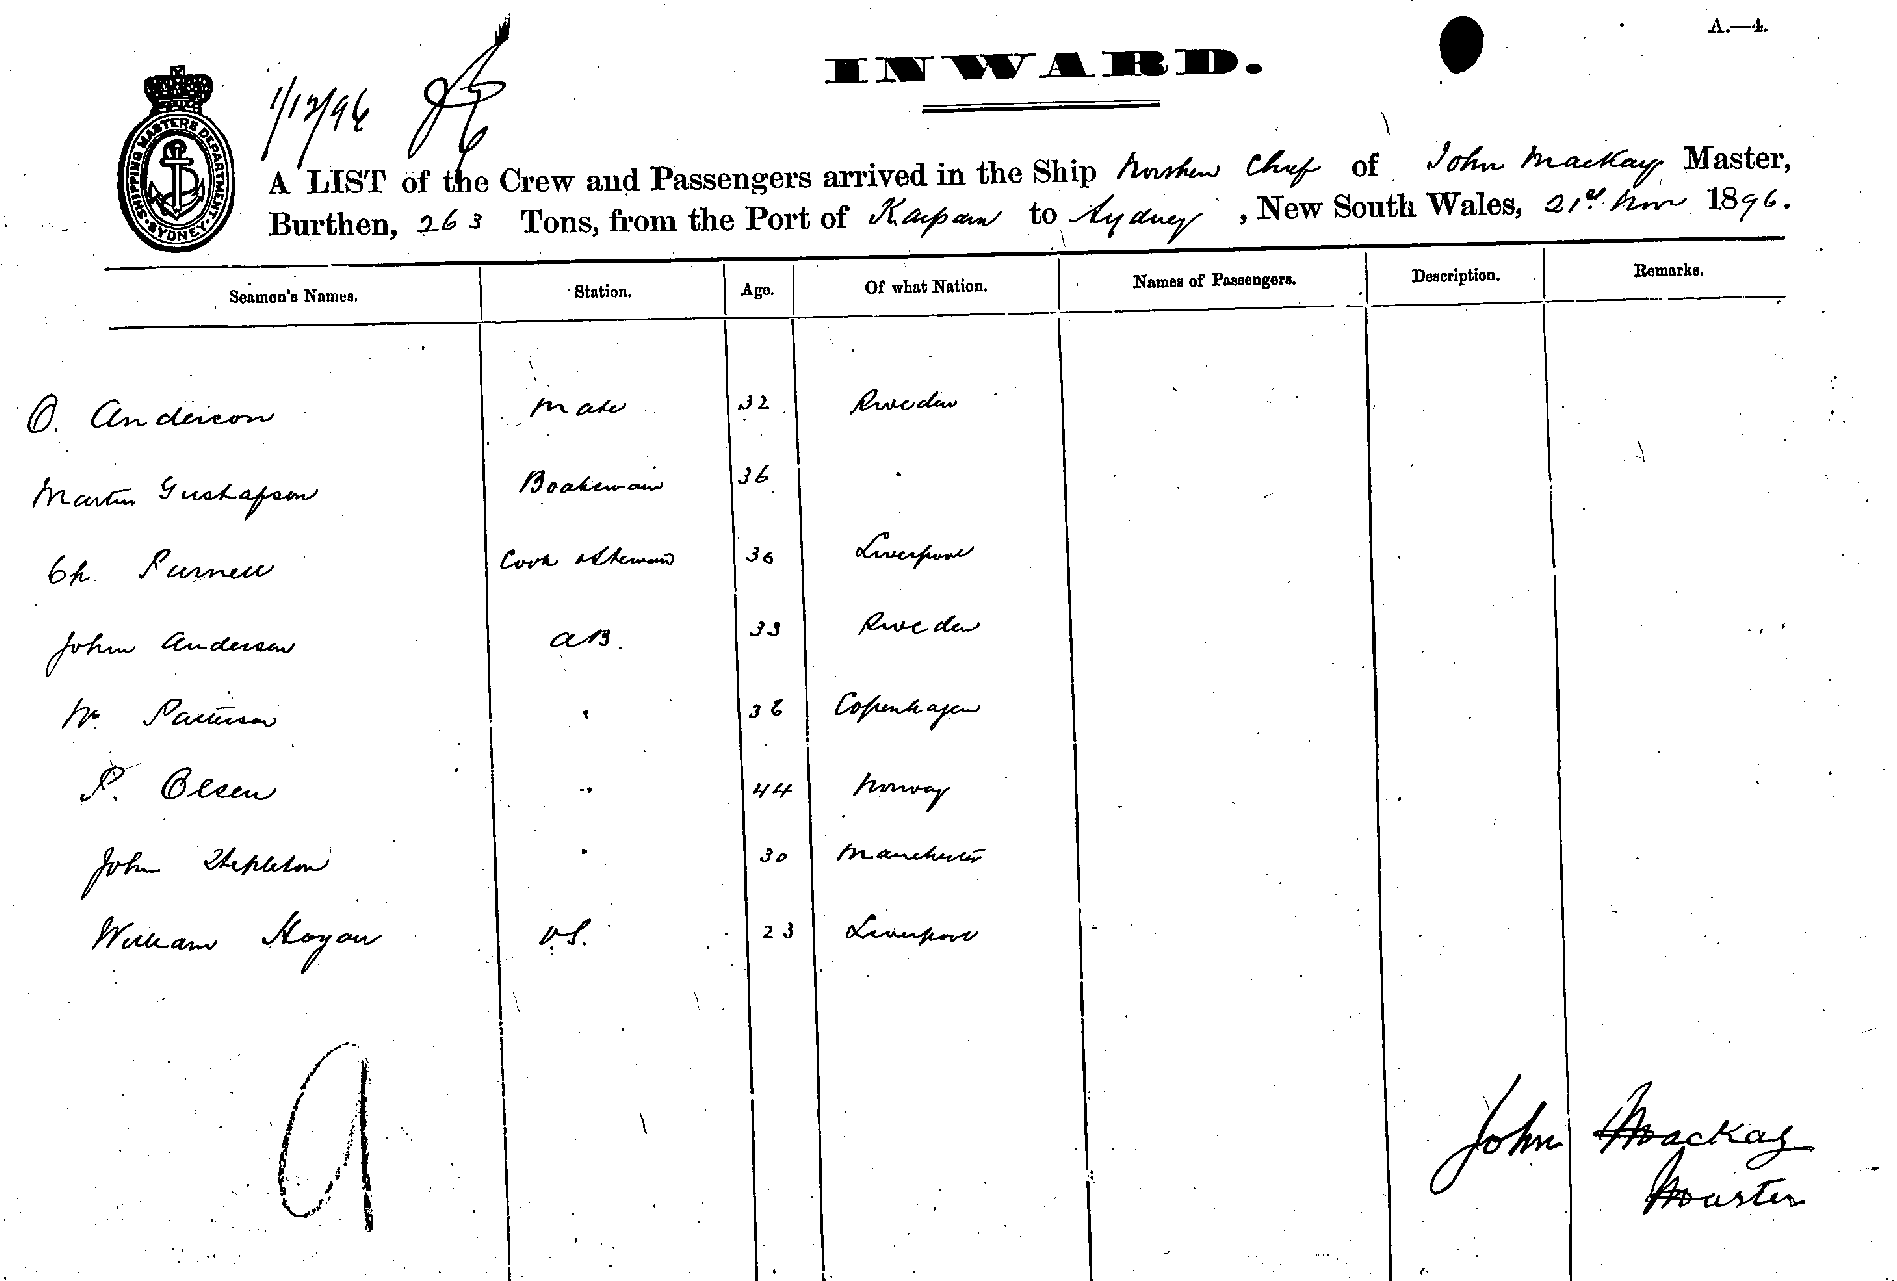 A.—4.
INWARD.
1/12/96
SHIPPING MASTERS DEPARTMENT. SYDNEY.
A LIST of the Crew and Passengers arrived in the Ship Northern Chief of John Mackay Master,
Burthen, 263 Tons, from the Port of to Sydney, New South Wales, 21st Nov 1896.
Seamen's Names. Station. Age. Of what Nation. Names of Passengers. Description. Remarks.
O. Anderson Mate 32 Sweden
Martin Gustafson Boatswain 36 "
Ch. Purnell Cook & Steward 36 Liverpool
John Anderson AB. 33 Sweden
Wm Patterson " 36 Copenhagen
P. Olsen " 44 Norway
John Stepleton " 30 Manchester
William Hogan O.S. 23 Liverpool
John Mackay
Master